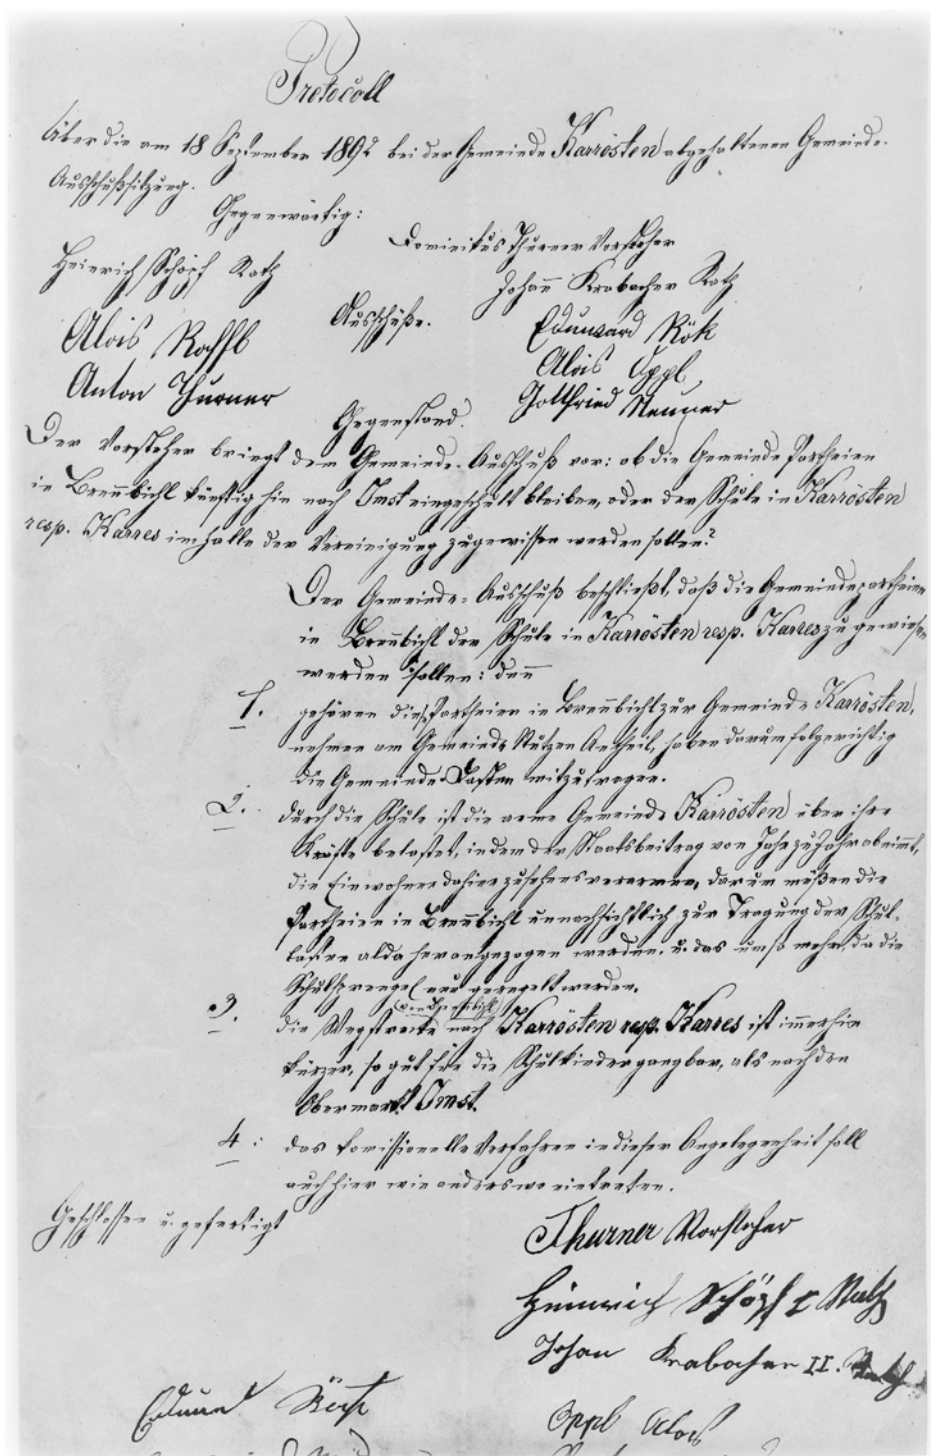 Protocoll
Über die am 18 September 1892 bei der Gemeinde Karrösten abgehaltenen Gemeinde-
Ausschußsitzung.
Gegenwärtig:
Dominikus Thurner Vorsteher
Heinrich Schöpf Rath
Johann Krabacher Rath
Ausschüße.
Alois Raffl
Eduward Rök
Alois Oppl
Anton Thurner
Gottfried Neuner
Gegenstand.
Der Vorsteher bringt dem Gemeinde-Ausschuß vor: ob die Gemeinde Partheien
in Brennbichl künftig hin nach Imst eingeschult bleiben, oder der Schule in Karrösten
resp. Karres im Falle der Vereinigung zugewissen werden sollen?
Der Gemeinde-Ausschuß beschließt, daß die Gemeindepartheien
in Brennbichl der Schule in Karrösten resp. Karres zu gewiesen
werden sollen: denn
1. gehören diese Partheien in Brennbichl zur Gemeinde Karrösten,
nehmen am Gemeinde Nutzen Antheil, haben darum folgerichtig
die Gemeinde Lasten mitzutragen.
2. durch die Schule ist die arme Gemeinde Karrösten über ihre
Kräfte belastet, indem der Staatsbeitrag von Jahr zu Jahr abnimmt,
die Einwohner dahier zusehens verarmen, darum müßen die
Partheien in Brennbichl unnachsichtlich zur Tragung der Schul-
lasten alda herangezogen werden. u. das umso mehr, da die
Schulsprengel neu geregelt werden.
3. die Wegstrecke von Brennbichl nach Karrösten resp. Karres ist immerhin
kürzer, so gut für die Schulkinder gangbar, als nach den
Obermarkt Imst.
4. das komissionelle Verfahren in dieser Angelegenheit soll
auch hier wie anderswo eintreten.
Geschlossen u. gefertigt
Thurner Vorsteher
Heinrich Schöpf I Rath
Johan Krabacher II. Rath
Eduard Rök
Oppl Alois